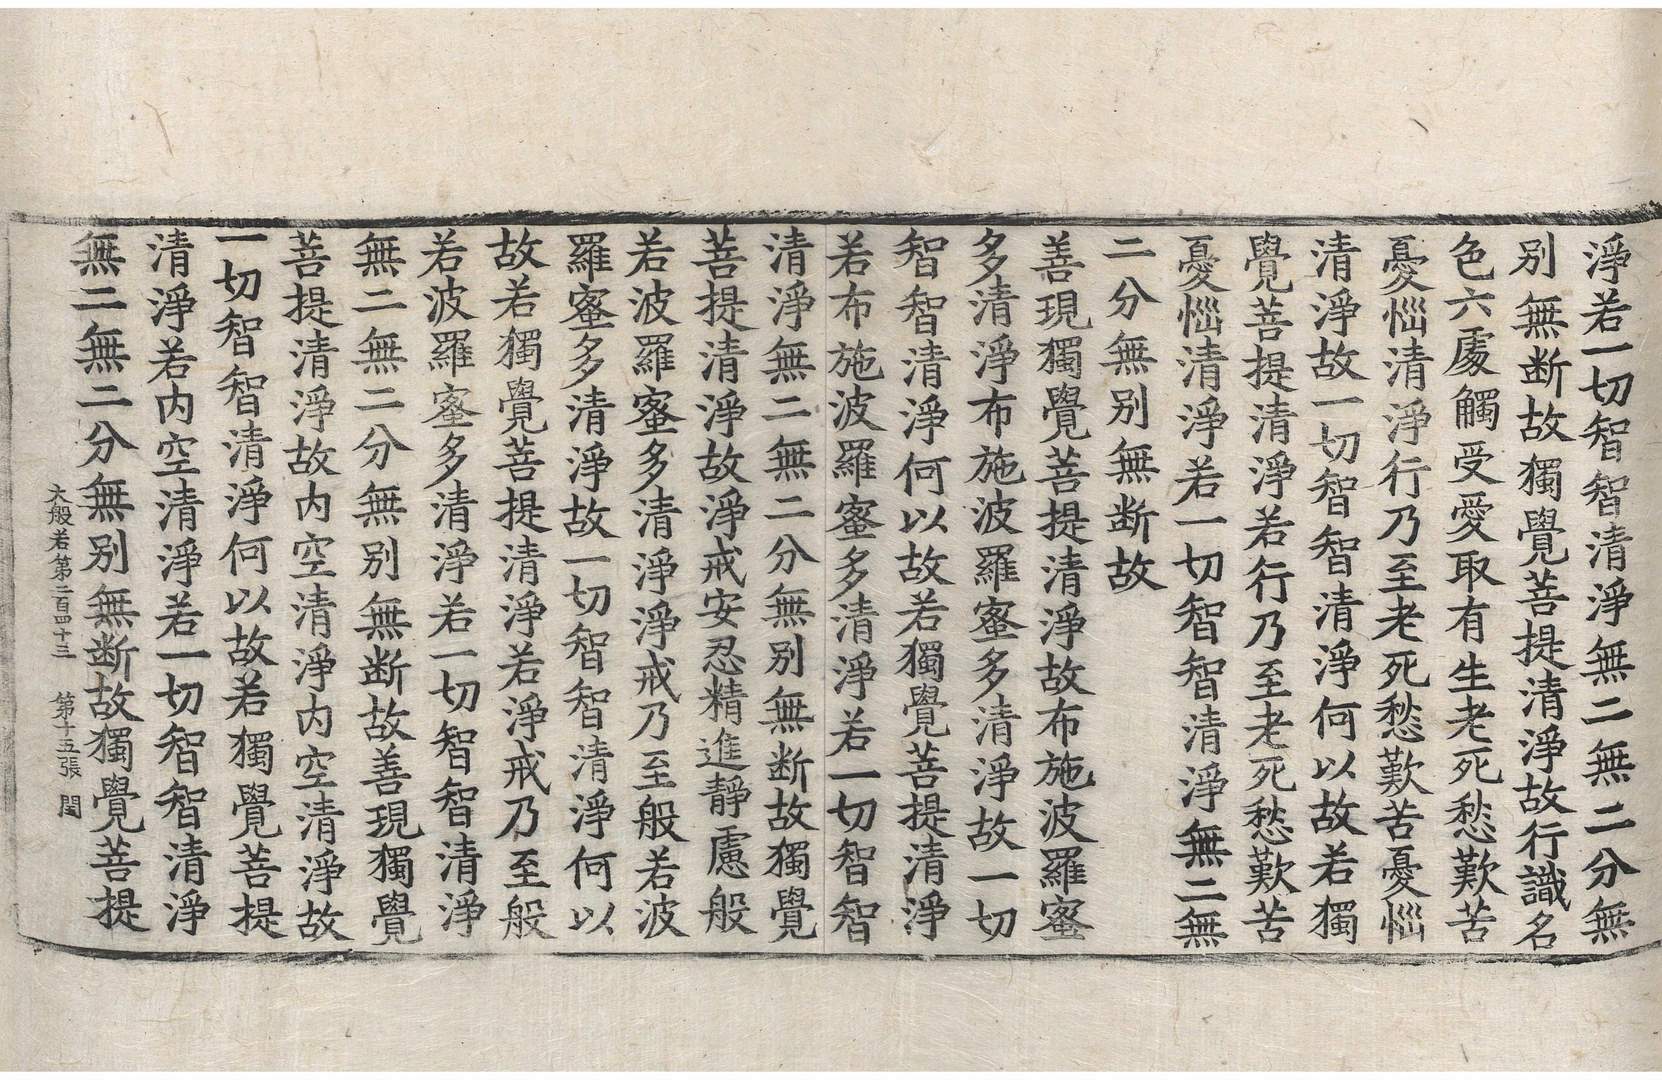 淨若一切智智清淨無二無二分無
别無断故獨覺菩提清淨故行識名
色六處觸受愛取有生老死愁歎苦
憂惱清淨行乃至老死愁歎苦憂惱
清淨故一切智智清淨何以故若獨
覺菩提清淨若行乃至老死愁歎苦
憂惱清淨若一切智智清淨無二無
二分無别無断故
善現獨覺菩提清淨故布施波羅蜜
多清淨布施波羅蜜多清淨故一切
智智清淨何以故若獨覺菩提清淨
若布施波羅蜜多清淨若一切智智
清淨無二無二分無别無断故獨覺
菩提清淨故淨戒安忍精進靜慮般
若波羅蜜多清淨淨戒乃至般若波
羅蜜多清淨故一切智智清淨何以
故若獨覺菩提清淨若淨戒乃至般
若波羅蜜多清淨若一切智智清淨
無二無二分無别無断故善現獨覺
菩提清淨故内空清淨内空清淨故
一切智智清淨何以故若獨覺菩提
清淨若内空清淨若一切智智清淨
無二無二分無别無断故獨覺菩提
大般若第二百四十三 第十五張 閏